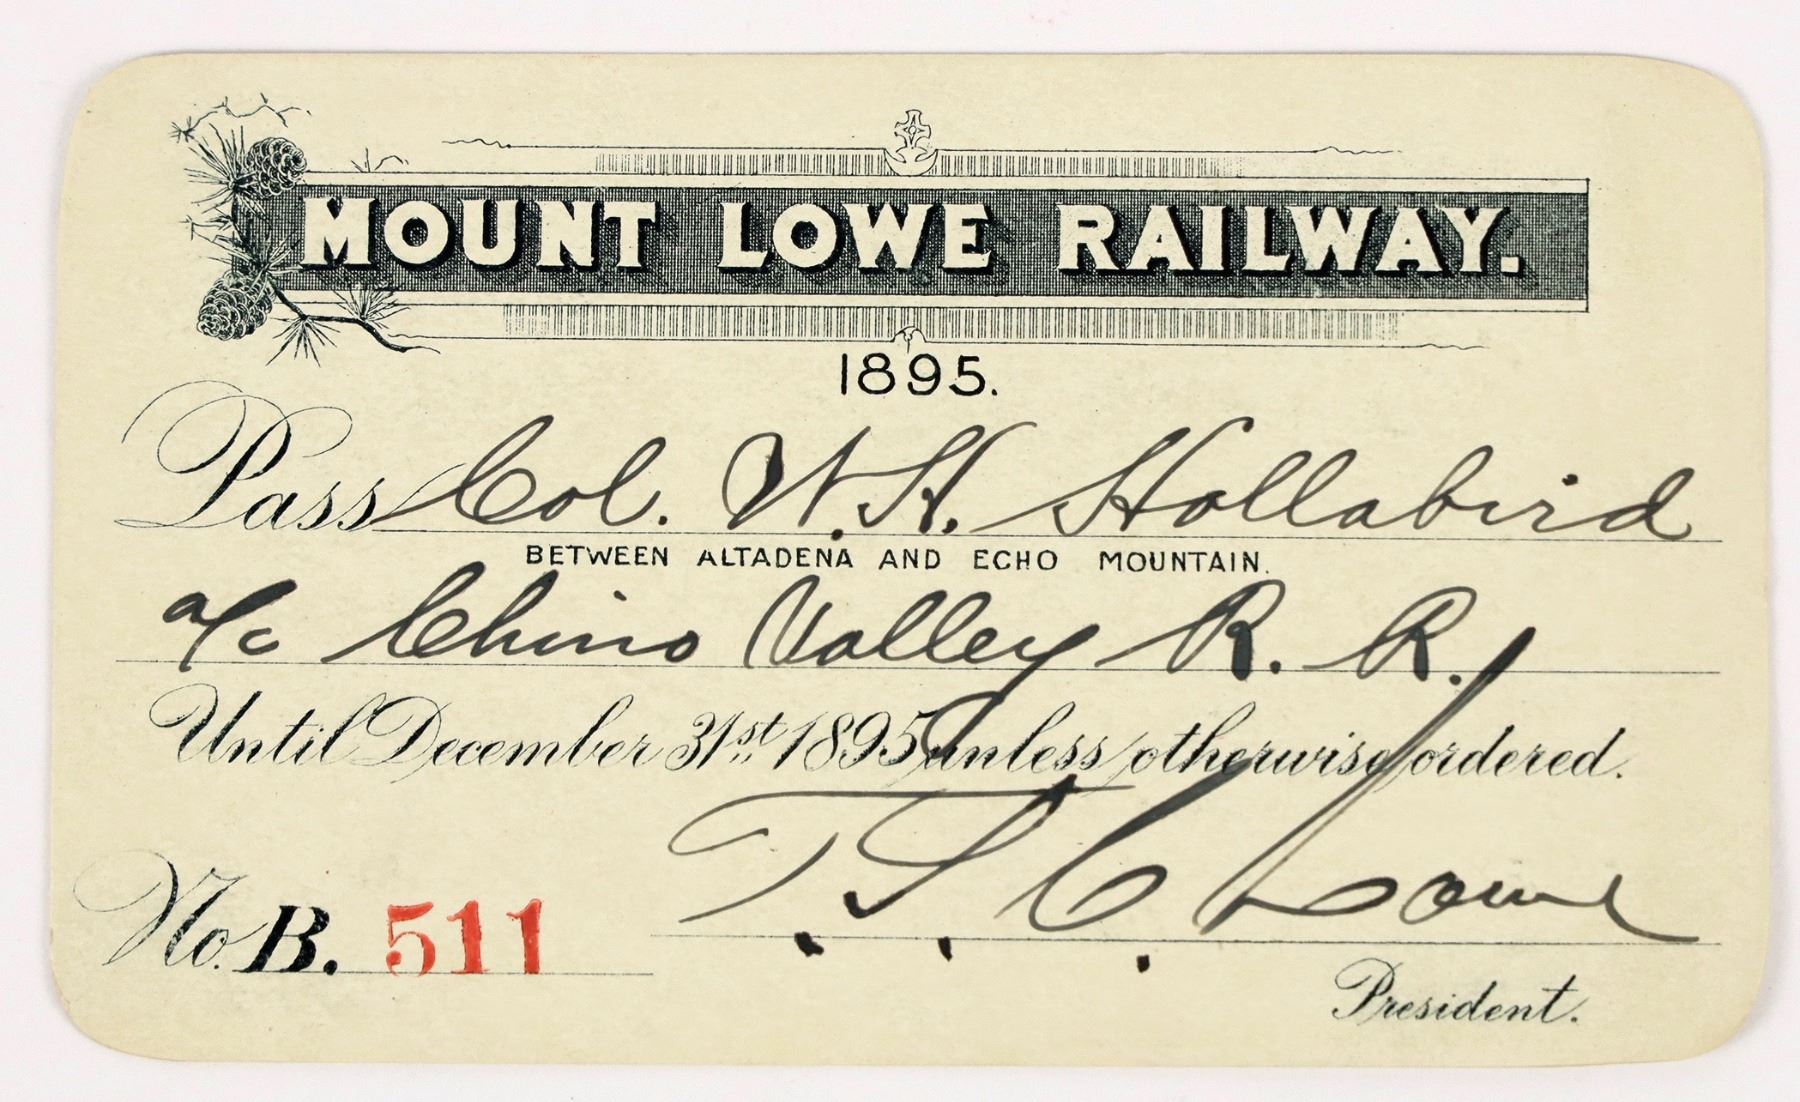 MOUNT LOWE RAILWAY.
1895.
Pass Col. W. H. Hollabird
BETWEEN ALTADENA AND ECHO MOUNTAIN.
a/c Chino Valley R. R.
Until December 31st 1895, unless otherwise ordered.
T. S. C. Lowe
No. B. 511
President.